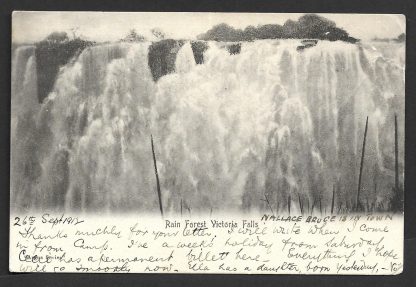 Rain Forest Victoria Falls
WALLACE BRUCE IS IN TOWN
26th Sept 1912
Thanks muchly for your letter. I will write when I come
in from Camp. I've a week's holiday from Saturday
Con has a permanent billett here - Everything I hope
will go smoothly now. Ella has a daughter, born yesterday, -